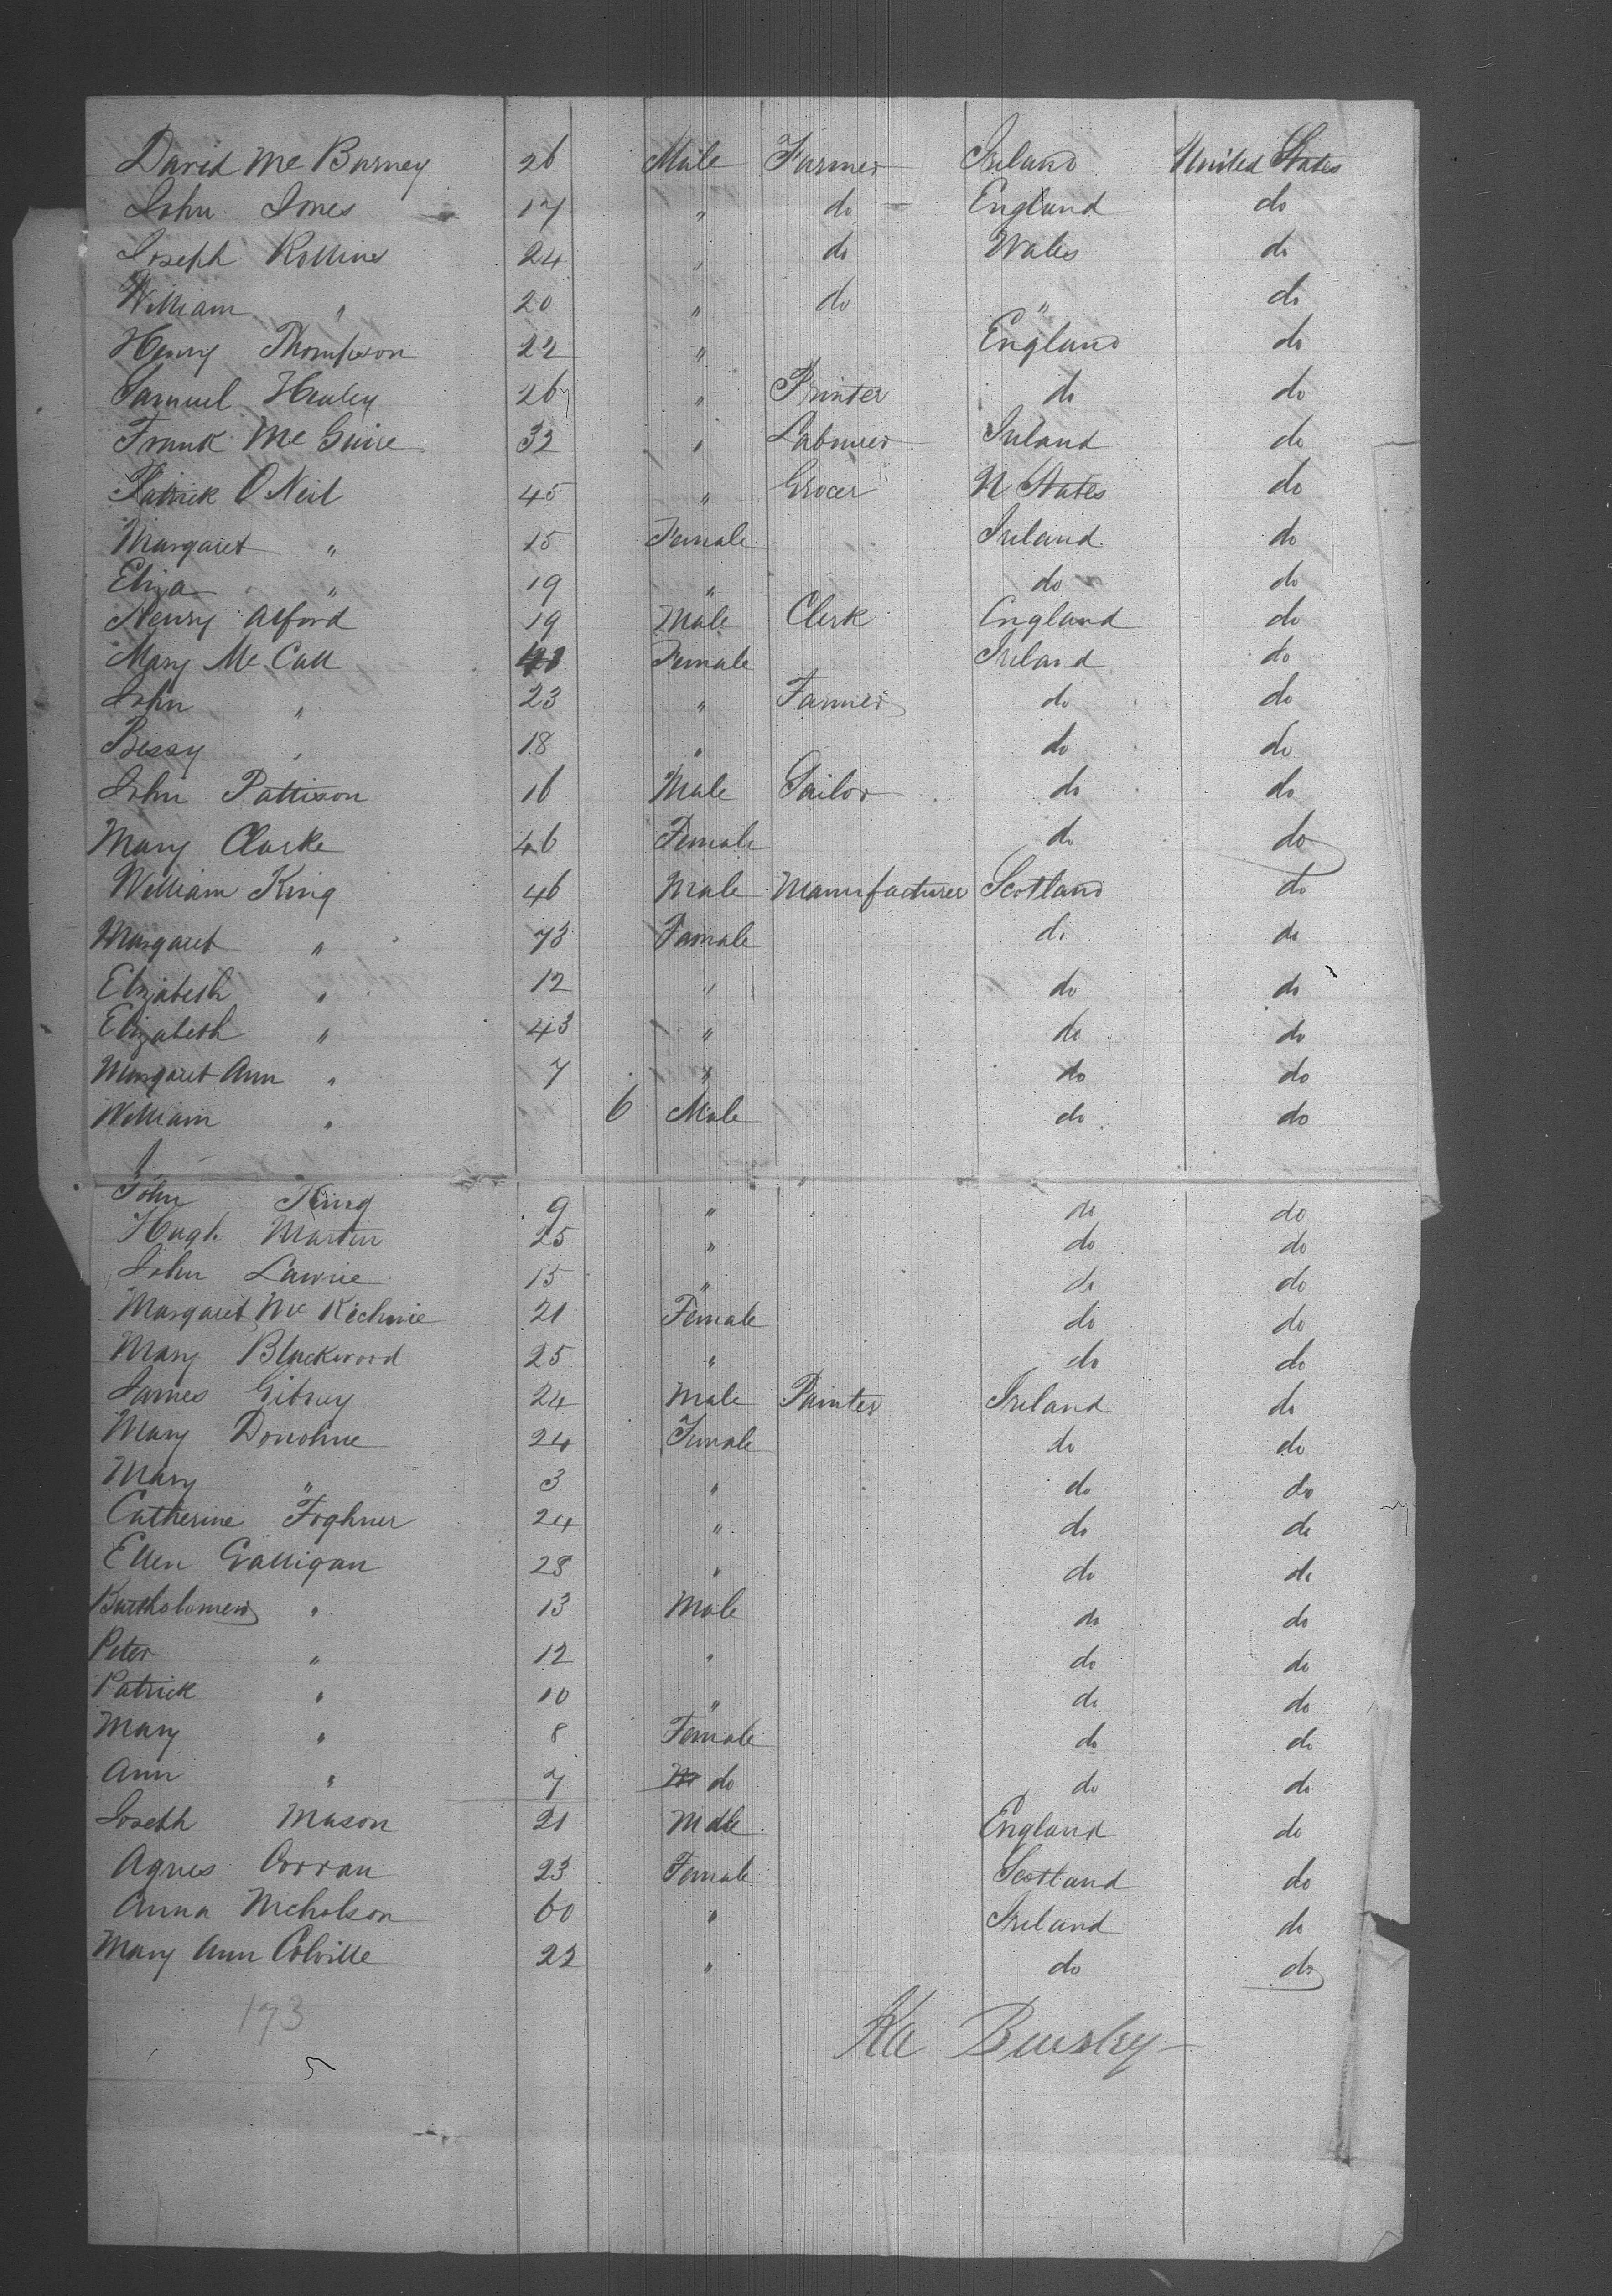 David Mc Burney 26 Male Farmer Ireland United States
John Jones 17 " do England do
Joseph Rollins 24 " do Wales do
William " 20 " do " do
Henry Thompson 22 " England do
Samuel Henley 26 " Printer do do
Frank Mc Guire 32 " Labourer Ireland do
Patrick O Neil 45 " Grocer U States do
Margaret " 15 Female Ireland do
Eliza " 19 " do do
Henry Alford 19 Male Clerk England do
Mary Mc Call Female Ireland do
John " 23 " Farmer do do
Bessy " 18 " do do
John Pattison 16 Male Sailor do do
Mary Clarke 46 Female do do
William King 46 Male Manufacturer Scotland do
Margaret " 73 Female do do
Elizabeth " 12 " do do
Elizabeth " 43 " do do
Margaret Ann " 7 " do do
William " 6 Male do do
John King 9 " do do
Hugh Martin 25 " do do
John Lawrie 15 " do do
Margaret Mc 21 Female do do
Mary Blackwood 25 " do do
James 24 Male Painter Ireland do
Mary Donohue 24 Female do do
Mary " 3 " do do
Catherine 24 " do do
Ellen Galligan 28 " do do
Bartholomew " 13 Male do do
Peter " 12 " do do
Patrick " 10 " do do
Mary " 8 Female do do
Ann " 7 do do do
Joseph Mason 21 Male England do
Agnes Corran 23 Female Scotland do
Anna Nicholson 60 " Ireland do
Mary Ann Colville 22 " do do
173